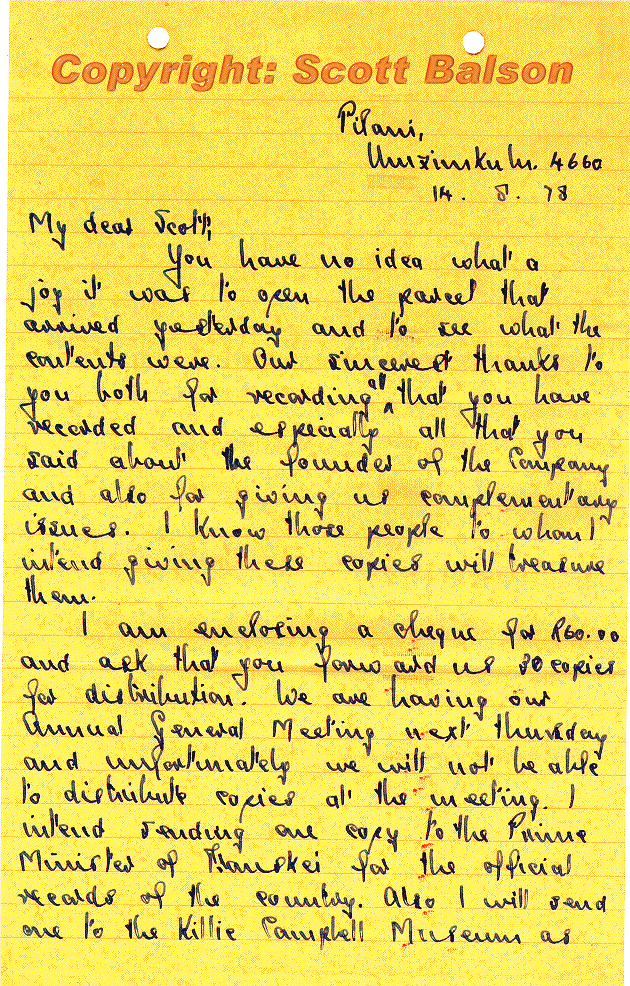 Copyright: Scott Balson
Pilani,
Umzimkulu. 4660
14. 8. 78
My dear Scott,
You have no idea what a
joy it was to open the parcel that
arrived yesterday and to see what the
contents were. Our sincerest thanks to
you both for recording all that you have
recorded and especially all that you
said about the founder of the Company
and also for giving us complementary
issues. I know those people to whom I
intend giving these copies will treasure
them.
I am enclosing a cheque for R60.00
and ask that you forward us 30 copies
for distribution. We are having our
Annual General Meeting next thursday
and unfortunately we will not be able
to distribute copies at the meeting. I
intend sending one copy to the Prime
Minister of Transkei for the official
records of the country. Also I will send
one to the Killie Campbell Museum as